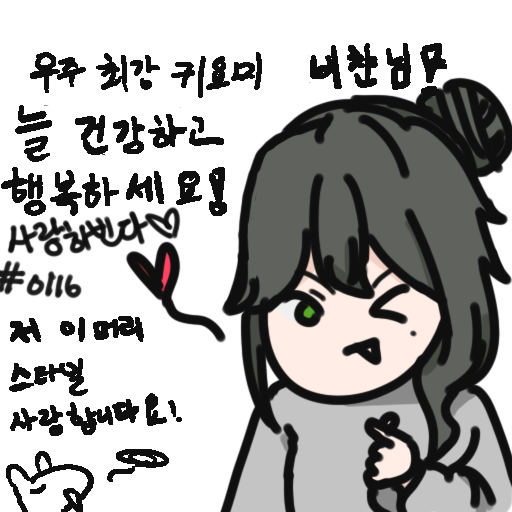 우주 최강 귀요미 비찬님!!
늘 건강하고
행복하세요!
사랑해빈다♡
#0116
저 이 머리
스타일
사랑합니다요!